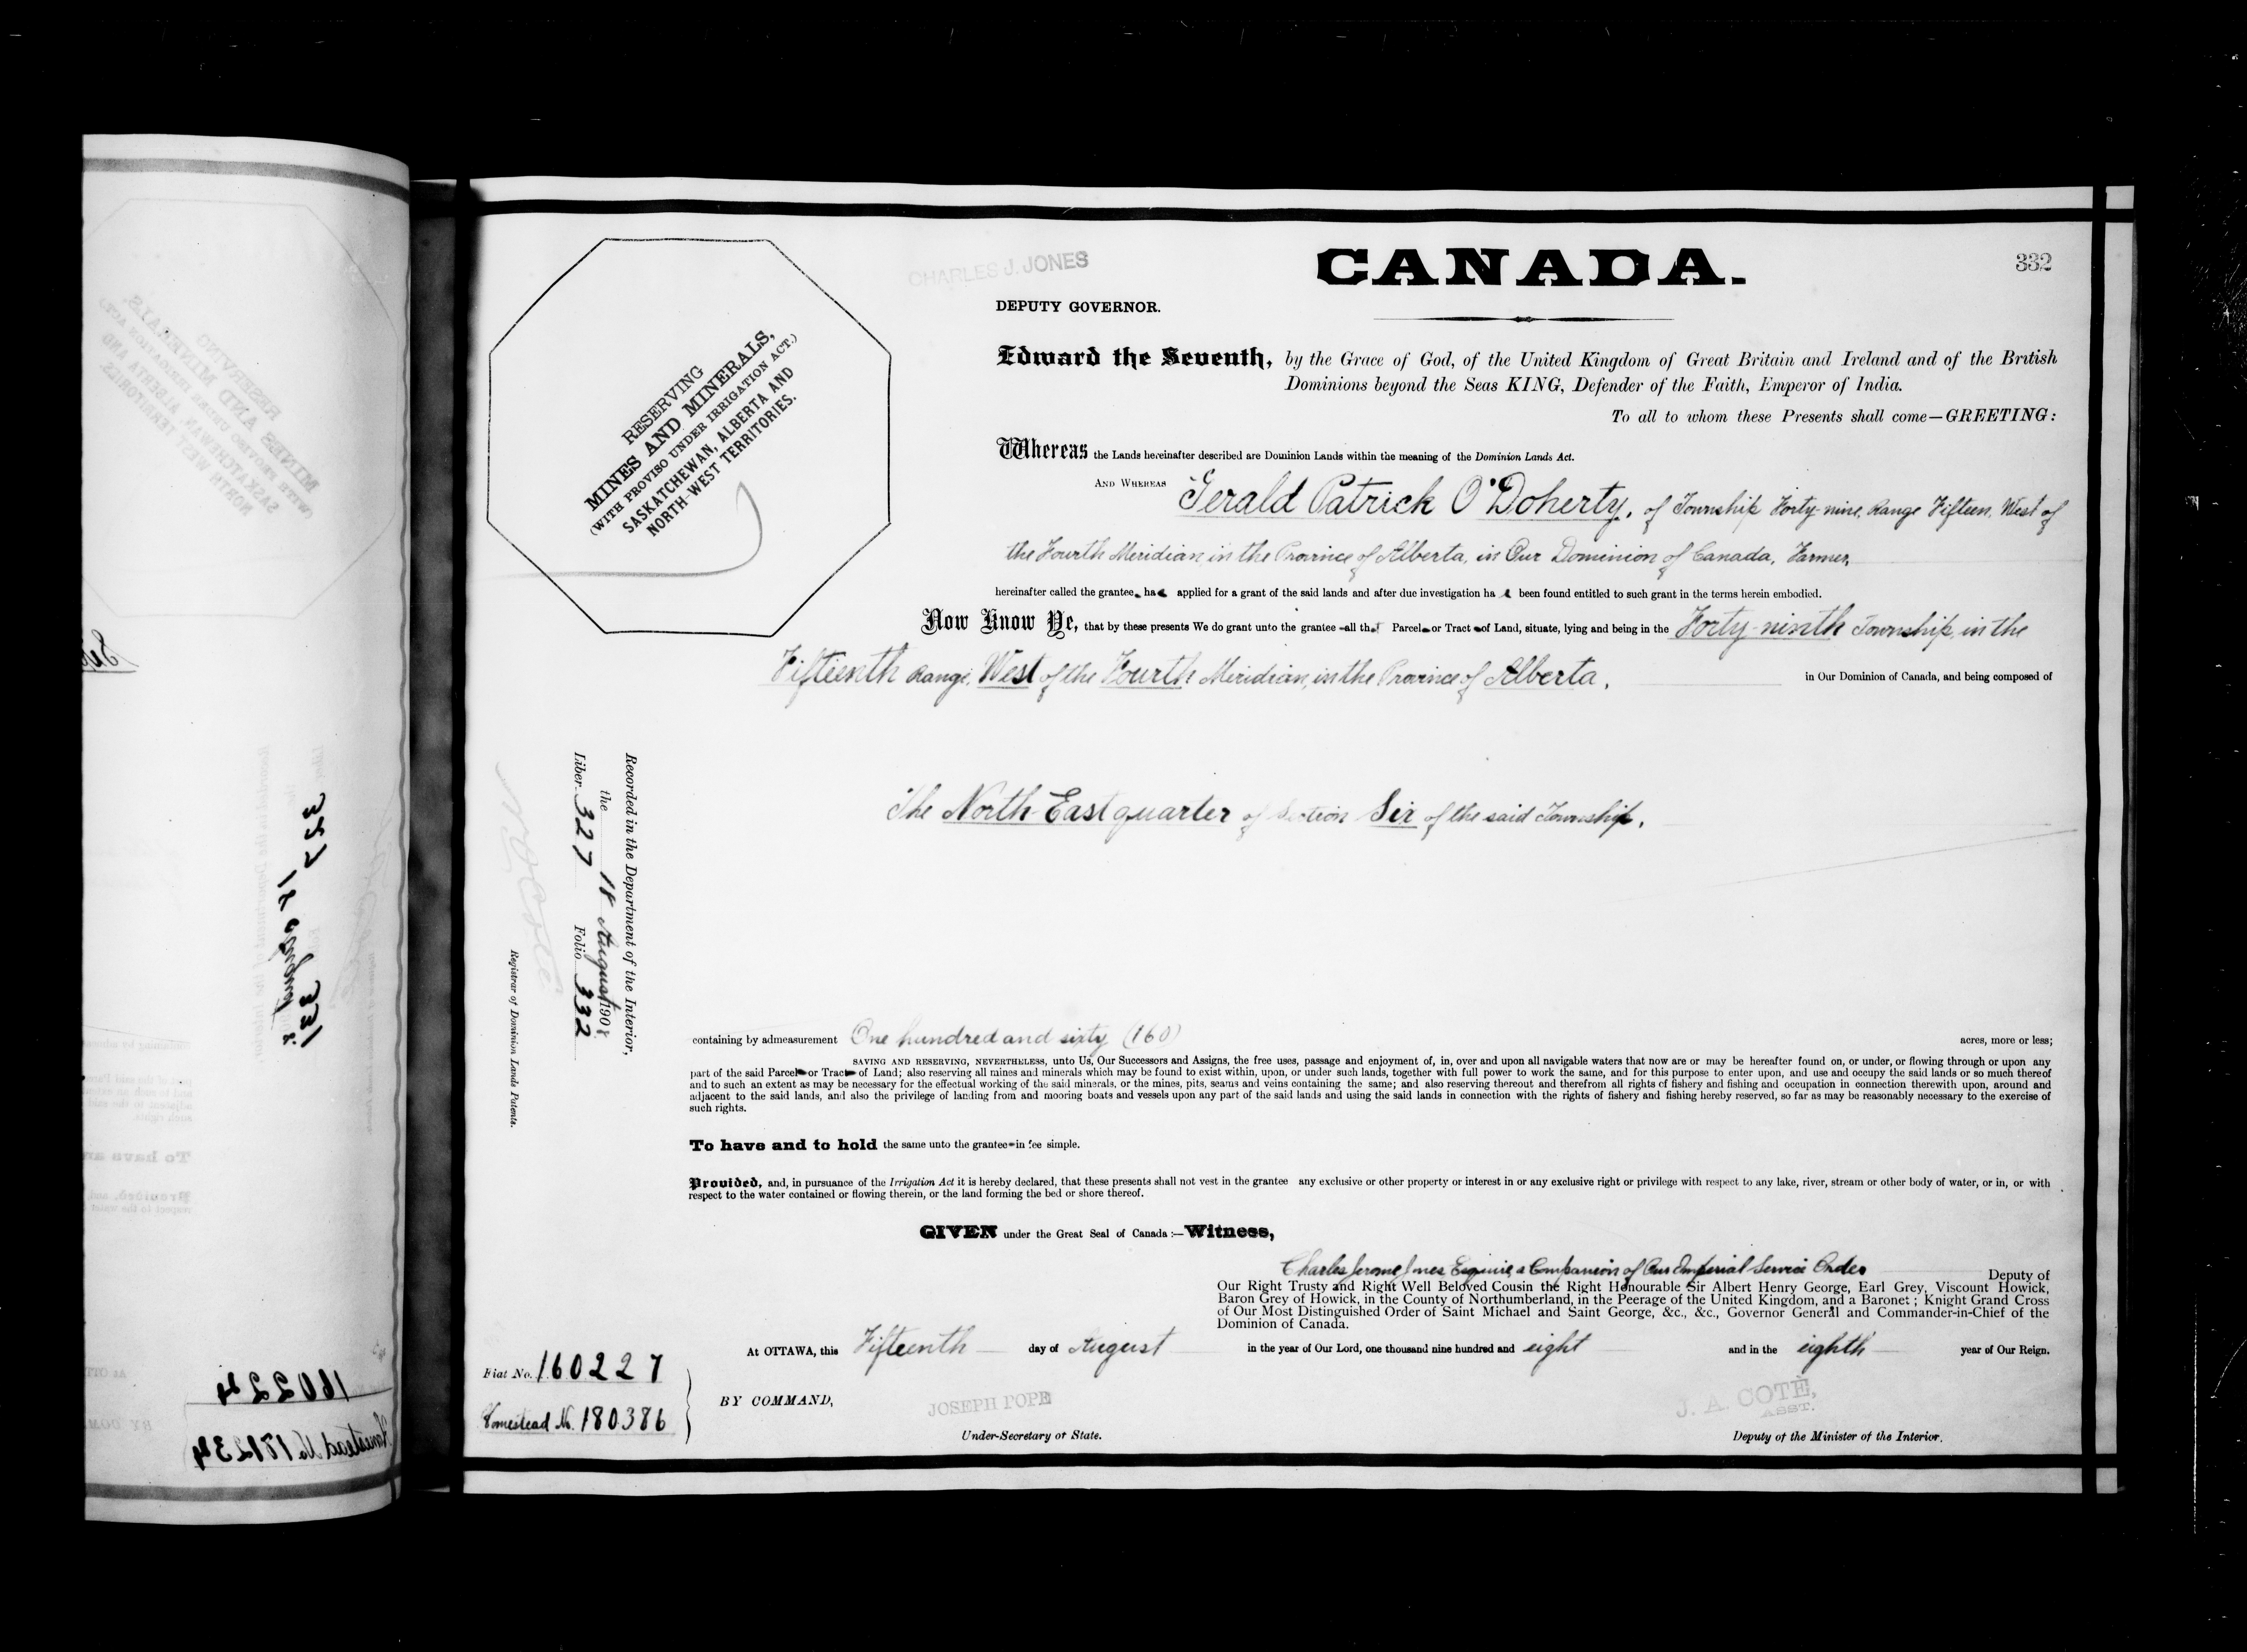 CHARLES J. JONES
CANADA.
332
DEPUTY GOVERNOR.
RESERVING
MINES AND MINERALS,
(WITH PROVISO UNDER IRRIGATION ACT.)
SASKATCHEWAN, ALBERTA AND
NORTH-WEST TERRITORIES.
Edward the Seventh, by the Grace of God, of the United Kingdom of Great Britain and Ireland and of the British
Dominions beyond the Seas KING, Defender of the Faith, Emperor of India.
To all to whom these Presents shall come—GREETING:
Whereas the Lands hereinafter described are Dominion Lands within the meaning of the Dominion Lands Act.
AND WHEREAS Gerald Patrick O'Doherty, of Township Forty-nine, Range Fifteen, West of
the Fourth Meridian, in the Province of Alberta, in Our Dominion of Canada, Farmer,
hereinafter called the grantee, has applied for a grant of the said lands and after due investigation has been found entitled to such grant in the terms herein embodied.
Now Know Ye, that by these presents We do grant unto the grantee all that Parcel or Tract of Land, situate, lying and being in the Forty-ninth Township, in the
Fifteenth Range, West of the Fourth Meridian, in the Province of Alberta, in Our Dominion of Canada, and being composed of
The North-East quarter of Section Six of the said Township.
Recorded in the Department of the Interior,
the 18 August 1908
Liber 327 Folio 332
Registrar of Dominion Lands Patents.
containing by admeasurement One hundred and sixty (160) acres, more or less;
SAVING AND RESERVING, NEVERTHELESS, unto Us, Our Successors and Assigns, the free uses, passage and enjoyment of, in, over and upon all navigable waters that now are or may be hereafter found on, or under, or flowing through or upon any
part of the said Parcel or Tract of Land; also reserving all mines and minerals which may be found to exist within, upon, or under such lands, together with full power to work the same, and for this purpose to enter upon, and use and occupy the said lands or so much thereof
and to such an extent as may be necessary for the effectual working of the said minerals, or the mines, pits, seams and veins containing the same; and also reserving thereout and therefrom all rights of fishery and fishing and occupation in connection therewith upon, around and
adjacent to the said lands, and also the privilege of landing from and mooring boats and vessels upon any part of the said lands and using the said lands in connection with the rights of fishery and fishing hereby reserved, so far as may be reasonably necessary to the exercise of
such rights.
To have and to hold the same unto the grantee in fee simple.
Provided, and, in pursuance of the Irrigation Act it is hereby declared, that these presents shall not vest in the grantee any exclusive or other property or interest in or any exclusive right or privilege with respect to any lake, river, stream or other body of water, or in, or with
respect to the water contained or flowing therein, or the land forming the bed or shore thereof.
GIVEN under the Great Seal of Canada:—Witness,
Charles Jerome Jones Esquire, a Companion of Our Imperial Service Order Deputy of
Our Right Trusty and Right Well Beloved Cousin the Right Honourable Sir Albert Henry George, Earl Grey, Viscount Howick,
Baron Grey of Howick, in the County of Northumberland, in the Peerage of the United Kingdom, and a Baronet; Knight Grand Cross
of Our Most Distinguished Order of Saint Michael and Saint George, &c., &c., Governor General and Commander-in-Chief of the
Dominion of Canada.
At OTTAWA, this Fifteenth day of August in the year of Our Lord, one thousand nine hundred and eight and in the eighth year of Our Reign.
Fiat No. 160227
Homestead No. 180386
BY COMMAND,
JOSEPH POPE
Under-Secretary of State.
J. A. COTÉ,
ASST.
Deputy of the Minister of the Interior.